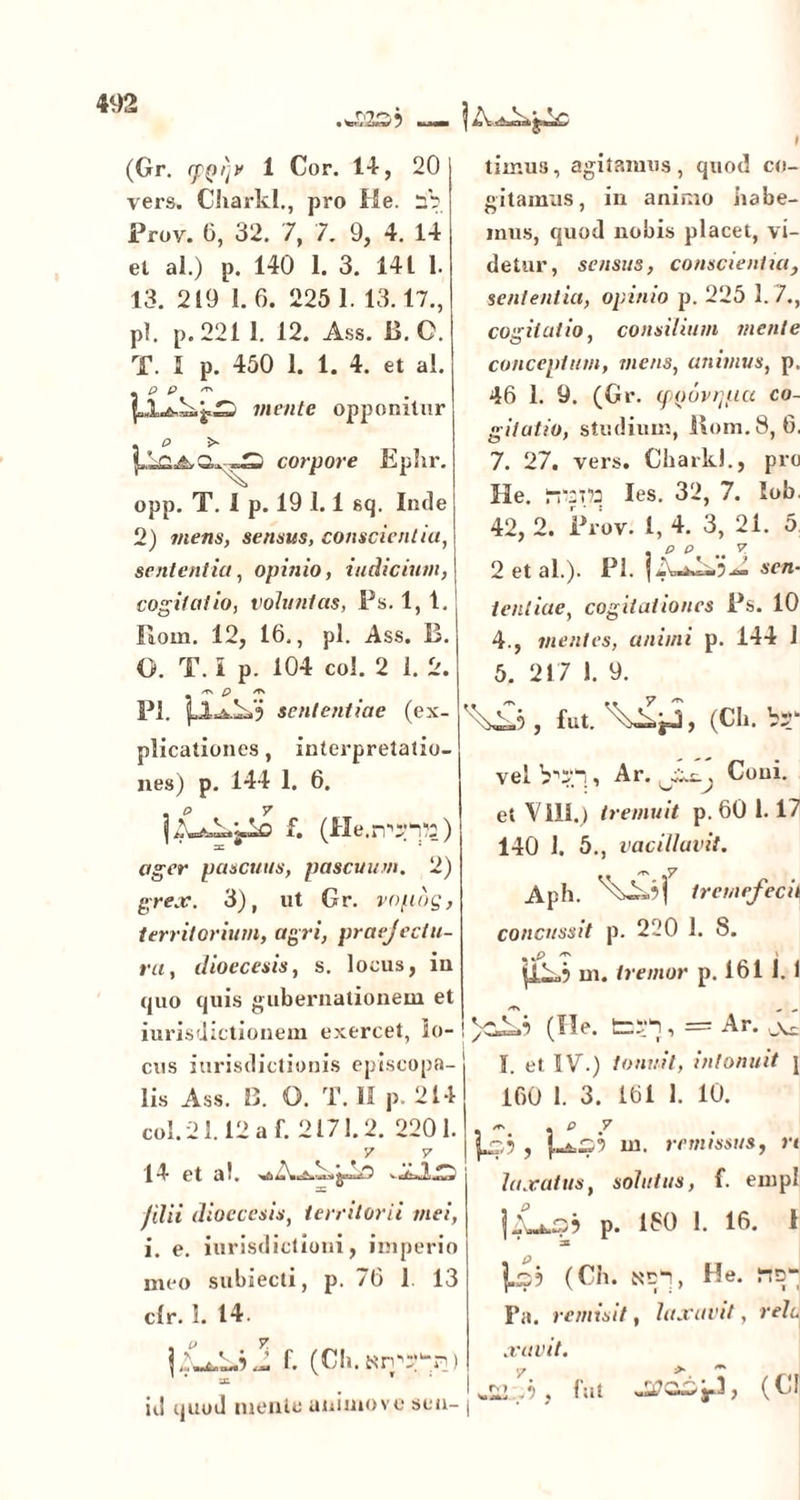 492
ܪܦܣ — ܡܪܥܝܬܐ
(Gr. φρήν 1 Cor. 14, 20
vers. Charkl., pro He. לב
Prov. 6, 32. 7, 7. 9, 4. 14
et al.) p. 140 l. 3. 141 l.
13. 219 l. 6. 225 l. 13. 17.,
pl. p. 221 l. 12. Ass. B. O.
T. I p. 450 l. 1. 4. et al.
ܒܪܥܝܢܐ mente opponitur
corpore Ephr.
opp. T. I p. 19 l. 1 sq. Inde
2) mens, sensus, conscientia,
sententia, opinio, iudicium,
cogitatio, voluntas, Ps. 1, 1.
Rom. 12, 16., pl. Ass. B.
O. T. I p. 104 col. 2 l. 2.
Pl. ܪܥܝܢܐ sententiae (ex-
plicationes, interpretatio-
nes) p. 144 l. 6.
ܡܪܥܝܬܐ f. (He. מרעית)
ager pascuus, pascuum. 2)
grex. 3), ut Gr. νομὸς,
territorium, agri, praefectu-
ra, dioecesis, s. locus, in
quo quis gubernationem et
iurisdictionem exercet, lo-
cus iurisdictionis episcopa-
lis Ass. B. O. T. II p. 214
col. 2 l. 12 a f. 217 l. 2. 220 l.
14 et al. ܒܢܝ ܡܪܥܝܬܝ
filii dioecesis, territorii mei,
i. e. iurisdictioni, imperio
meo subiecti, p. 76 l. 13
cfr. l. 14.
ܬܪܥܝܬܐ f. (Ch. תרעיתא)
id quod mente animove sen-
timus, agitamus, quod co-
gitamus, in animo habe-
mus, quod nobis placet, vi-
detur, sensus, conscientia,
sententia, opinio p. 225 l. 7.,
cogitatio, consilium mente
conceptum, mens, animus, p.
46 l. 9. (Gr. φρόνημα co-
gitatio, studium, Rom. 8, 6.
7. 27. vers. Charkl., pro
He. מזמה Ies. 32, 7. Iob.
42, 2. Prov. 1, 4. 3, 21. 5
2 et al.). Pl. ܬܪ̈ܥܝܬܐ sen-
tentiae, cogitationes Ps. 10
4., mentes, animi p. 144 l
5. 217 l. 9.
ܪܥܠ, fut. ܢܪܥܠ, (Ch. רעל
vel רעיל, Ar. Coni.
et VIII.) tremuit p. 60 l. 17
140 l. 5., vacillavit.
Aph. ܐܪܥܠ tremefecit
concussit p. 220 l. 8.
ܪܥܠܐ m. tremor p. 161 l. 1
ܪܥܡ (He. רעם, = Ar.
I. et IV.) tonuit, intonuit
160 l. 3. 161 l. 10.
ܪܦܐ, ܪܦܝܐ m. remissus, re
laxatus, solutus, f. empl
ܪܦܝܬܐ p. 180 l. 16.
ܪܦܐ (Ch. רפא, He. רפה
Pa. remisit, laxavit, rela
xavit.
ܪܦܣ, fut ܢܪܦܘܣ, (Cl